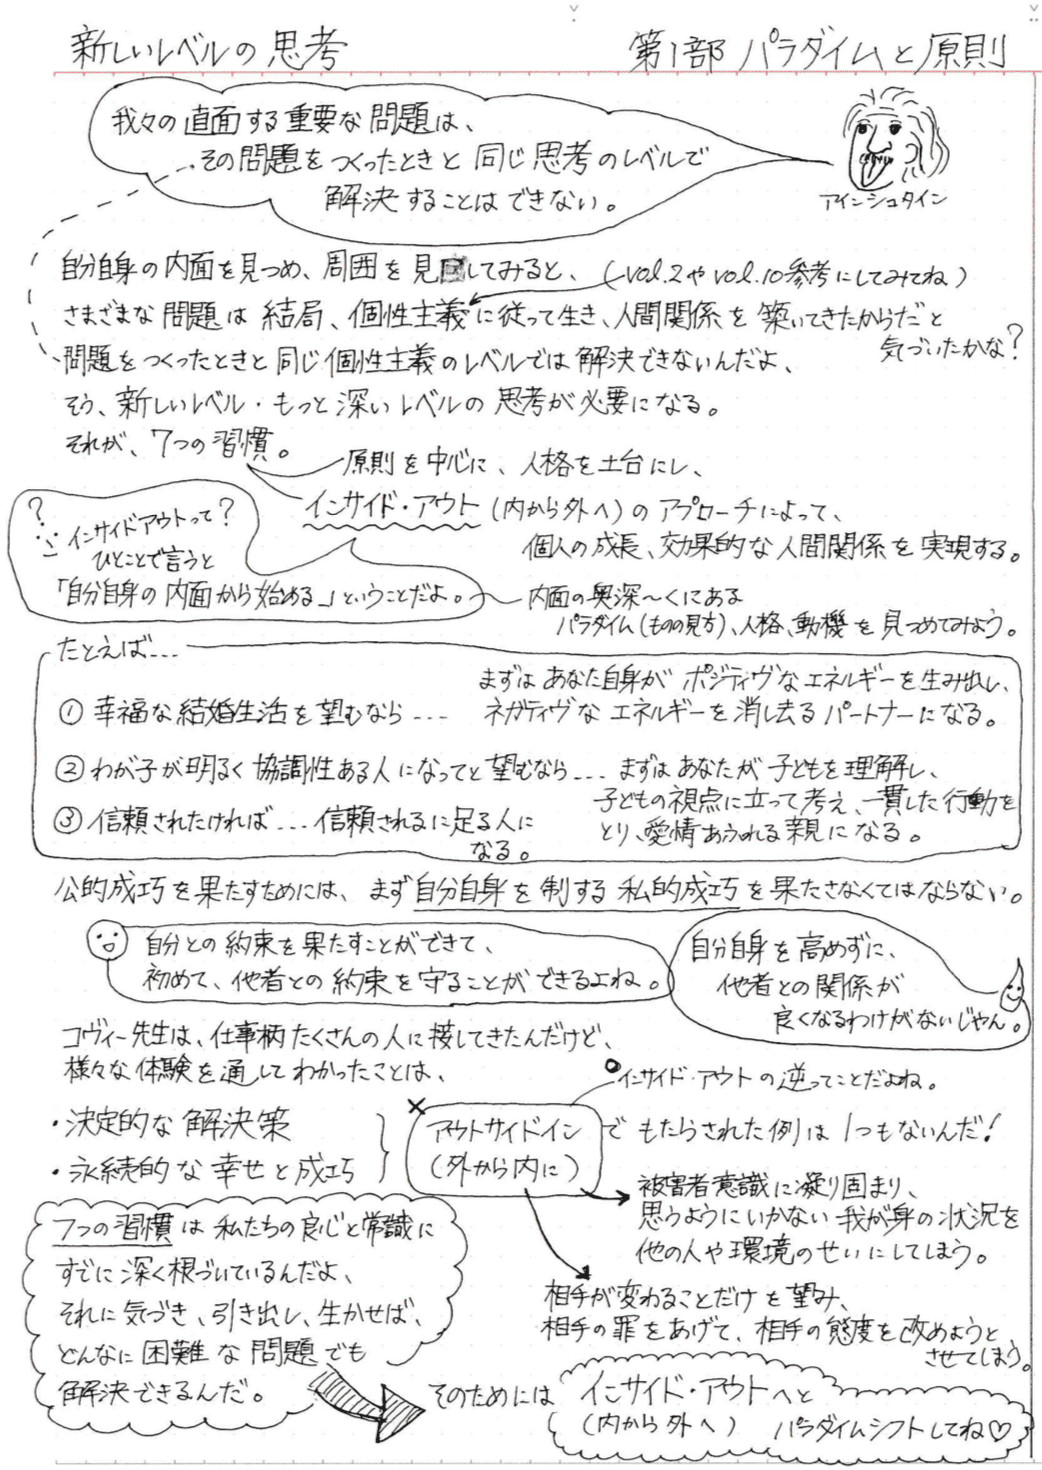 新しいレベルの思考
第1部 パラダイムと原則
我々の直面する重要な問題は、
その問題をつくったときと同じ思考のレベルで
解決することはできない。
アインシュタイン
自分自身の内面を見つめ、周囲を見回してみると、(vol.2やvol.10参考にしてみてね)
さまざまな問題は結局、個性主義に従って生き、人間関係を築いてきたからだと
気づいたかな?
問題をつくったときと同じ個性主義のレベルでは解決できないんだよ、
そう、新しいレベル・もっと深いレベルの思考が必要になる。
それが、7つの習慣。
原則を中心に、人格を土台にし、
インサイド・アウト(内から外へ)のアプローチによって、
個人の成長、効果的な人間関係を実現する。
?
インサイドアウトって?
ひとことで言うと
「自分自身の内面から始める」ということだよ。
内面の奥深〜くにある
パラダイム(ものの見方)、人格、動機を見つめてみよう。
たとえば...
①幸福な結婚生活を望むなら...
まずはあなた自身がポジティヴなエネルギーを生み出し、
ネガティヴなエネルギーを消し去るパートナーになる。
②わが子が明るく協調性ある人になってと望むなら...まずはあなたが子どもを理解し、
子どもの視点に立って考え、一貫した行動を
とり、愛情あふれる親になる。
③信頼されたければ...信頼されるに足る人に
なる。
公的成功を果たすためには、まず自分自身を制する私的成功を果たさなくてはならない。
自分との約束を果たすことができて、
初めて、他者との約束を守ることができるよね。
自分自身を高めずに、
他者との関係が
良くなるわけがないじゃん。
コヴィー先生は、仕事柄たくさんの人に接してきたんだけど、
様々な体験を通してわかったことは、
インサイド・アウトの逆ってことだよね。
・決定的な解決策
・永続的な幸せと成功
アウトサイドイン
(外から内に)
でもたらされた例は1つもないんだ!
被害者意識に凝り固まり、
思うようにいかない我が身の状況を
他の人や環境のせいにしてしまう。
相手が変わることだけを望み、
相手の罪をあげて、相手の態度を改めようと
させてしまう。
7つの習慣は私たちの良心と常識に
すでに深く根づいているんだよ、
それに気づき、引き出し、生かせば、
どんなに困難な問題でも
解決できるんだ。
そのためには
インサイド・アウトへと
(内から外へ) パラダイムシフトしてね♡